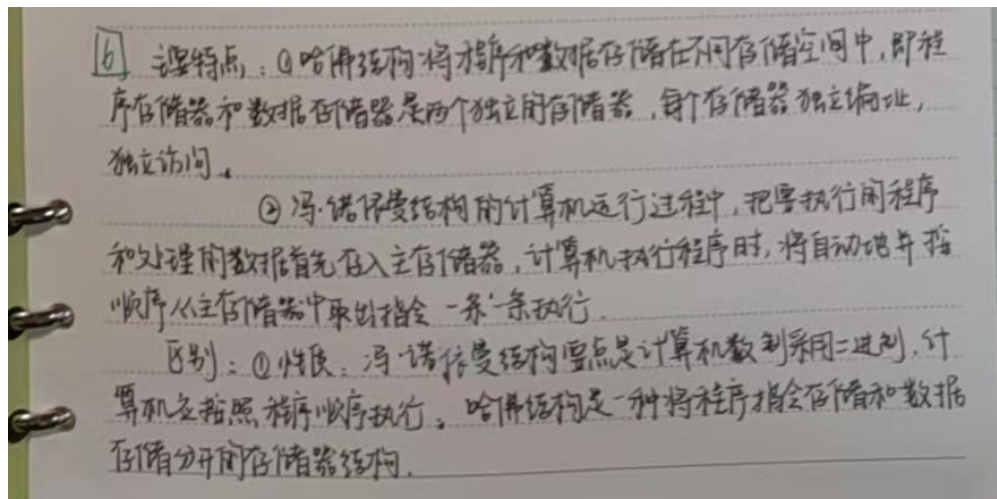 6 主要特点：①哈佛结构将程序和数据存储在不同存储空间中，即程
序存储器和数据存储器是两个独立的存储器，每个存储器独立编址，
独立访问。
②冯·诺依曼结构的计算机运行过程中，把要执行的程序
和处理的数据首先存入主存储器，计算机执行程序时，将自动地并按
顺序从主存储器中取出指令一条一条执行．
区别：①性质：冯·诺依曼结构要点是计算机数制采用二进制．计
算机应按照程序顺序执行。哈佛结构是一种将程序指令存储和数据
存储分开的存储器结构．